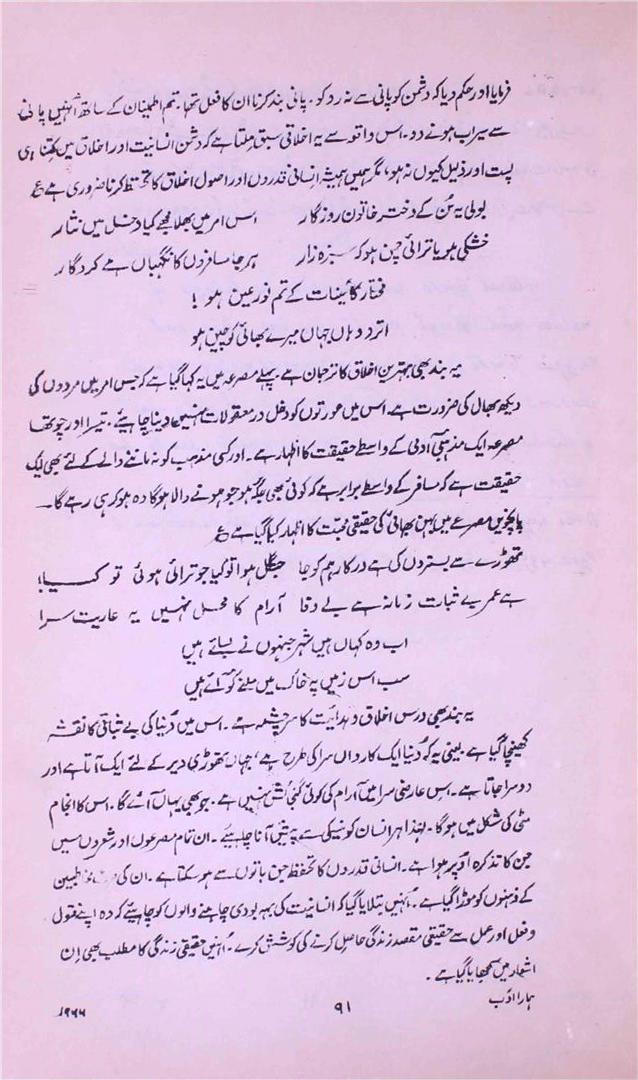 فرمایا اور حکم دیا کہ دشمن کو پانی سے نہ روکو۔ پانی بند کرنا ان کا فعل تھا۔ تم اطمینان کے ساتھ انہیں پانی
سے سیراب ہونے دو۔ اس واقعہ سے یہ اخلاقی سبق ملتا ہے کہ دشمن انسانیت اور اخلاق میں کتنا ہی
پست اور ذلیل کیوں نہ ہو، مگر ہمیں ہمیشہ انسانی قدروں اور اصول اخلاق کا تحفظ کرنا ضروری ہے ع
بولی یہ سُن کے دختر خاتونِ روزگار اس امر میں بھلا مجھے کیا دخل میں نثار
خشکی ہو یا ترائی چمن ہو کہ سبزہ زار ہر جا مسافروں کا نگہباں ہے کردگار
مختار کائینات کے تم نور عین ہو!
اترو وہاں جہاں میرے بھائی کو چین ہو
یہ بند بھی بہترین اخلاق کا ترجمان ہے۔ پہلے مصرعہ میں یہ کہا گیا ہے کہ جس امر میں مردوں کی
دیکھ بھال کی ضرورت ہے۔ اس میں عورتوں کو دخل در معقولات نہیں دینا چاہیئے۔ تیسرا اور چوتھا
مصرعہ ایک مذہبی آدمی کے واسطے حقیقت کا اظہار ہے۔ اور کسی مذہب کو نہ ماننے والے کے لئے بھی ایک
حقیقت ہے کہ مسافر کے واسطے برابر ہے کہ کوئی بھی جگہ ہو جو ہونے والا ہوگا وہ ہو کر ہی رہے گا۔
پانچویں مصرعے میں بہن بھائی کی حقیقی محبت کا اظہار کیا گیا ہے ع
تھوڑے سے بستروں کی ہے درکار ہم کو جا جنگل ہوا تو کیا جو ترائی ہوئی تو کیا!
ہے عمر بے ثبات زمانہ ہے بے وفا آرام کا محل نہیں یہ عاریت سرا
اب وہ کہاں ہیں شہر جنہوں نے بسائے ہیں
سب اس زمیں پہ خاک میں ملنے کو آئے ہیں
یہ بند بھی درس اخلاق و ہدایت کا سرچشمہ ہے۔ اس میں دُنیا کی بے ثباتی کا نقشہ
کھینچا گیا ہے یعنی یہ کہ دُنیا ایک کارواں سرا کی طرح ہے، جہاں تھوڑی دیر کے لئے ایک آتا ہے اور
دوسرا جاتا ہے۔ اس عارضی سرا میں آرام کی کوئی گنجائش نہیں ہے۔ جو بھی یہاں آئے گا۔ اس کا انجام
مٹی کی شکل میں ہوگا۔ لہٰذا ہر انسان کو نیکی سے پیش آنا چاہیئے۔ ان تمام مصرعوں اور شعروں میں
جن کا تذکرہ اُوپر ہوا ہے۔ انسانی قدروں کا تحفظ جن باتوں سے ہو سکتا ہے۔ ان کی
کے ذہنوں کو موڑا گیا ہے۔ اُنہیں بتلایا گیا کہ انسانیت کی بہبودی چاہنے والوں کو چاہیئے کہ وہ اپنے قول
و فعل اور عمل سے حقیقی مقصد زندگی حاصل کرنے کی کوشش کرے۔ اُنہیں حقیقی زندگی کا مطلب بھی اِن
اشعار میں سمجھایا گیا ہے۔
ہمارا ادب ۹۱ ۱۹۶۶